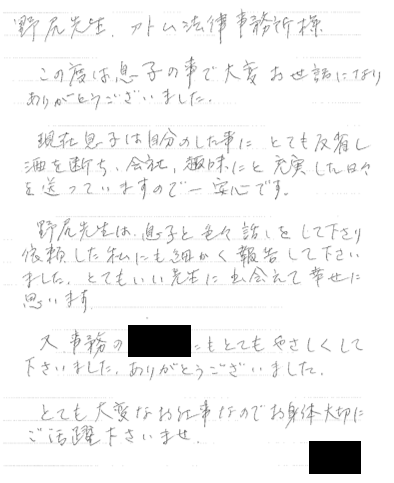 野尻先生、アトム法律事務所様
この度は息子の事で大変お世話になり
ありがとうございました。
現在息子は自分のした事に とても反省し
酒を断ち、会社、趣味にと 充実した日々
を送っていますので一安心です。
野尻先生は、息子と色々話しをして下さり
依頼した私にも細かく報告して下さい
ました。とてもいい先生に出会えて幸せに
思います。
又 事務の にもとてもやさしくして
下さいました。ありがとうございました。
とても大変なお仕事なのでお身体大切に
ご活躍下さいませ。